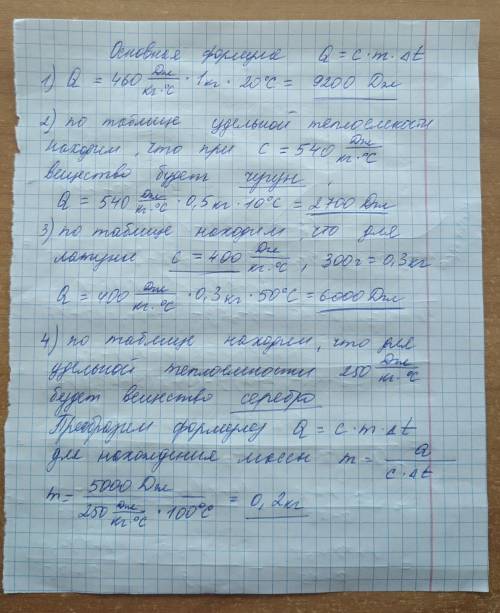 Основная формула Q = c · m · Δt
1) Q = 460 Дж/кг·°C · 1кг · 20°C = 9200 Дж
2) по таблице удельной теплоемкости
находим, что при c = 540 Дж/кг·°C
вещество будет чугун.
Q = 540 Дж/кг·°C · 0,5кг · 10°C = 2700 Дж
3) по таблице находим, что для
латуни c = 400 Дж/кг·°C, 300г = 0,3кг
Q = 400 Дж/кг·°C · 0,3кг · 50°C = 6000 Дж
4) по таблице находим, что для
удельной теплоемкости 250 Дж/кг·°C
будет вещество серебро
Преобразуем формулу Q = c · m · Δt
для нахождения массы m = Q/c·Δt
m = 5000 Дж/250 Дж/кг·°C · 100°C = 0,2кг